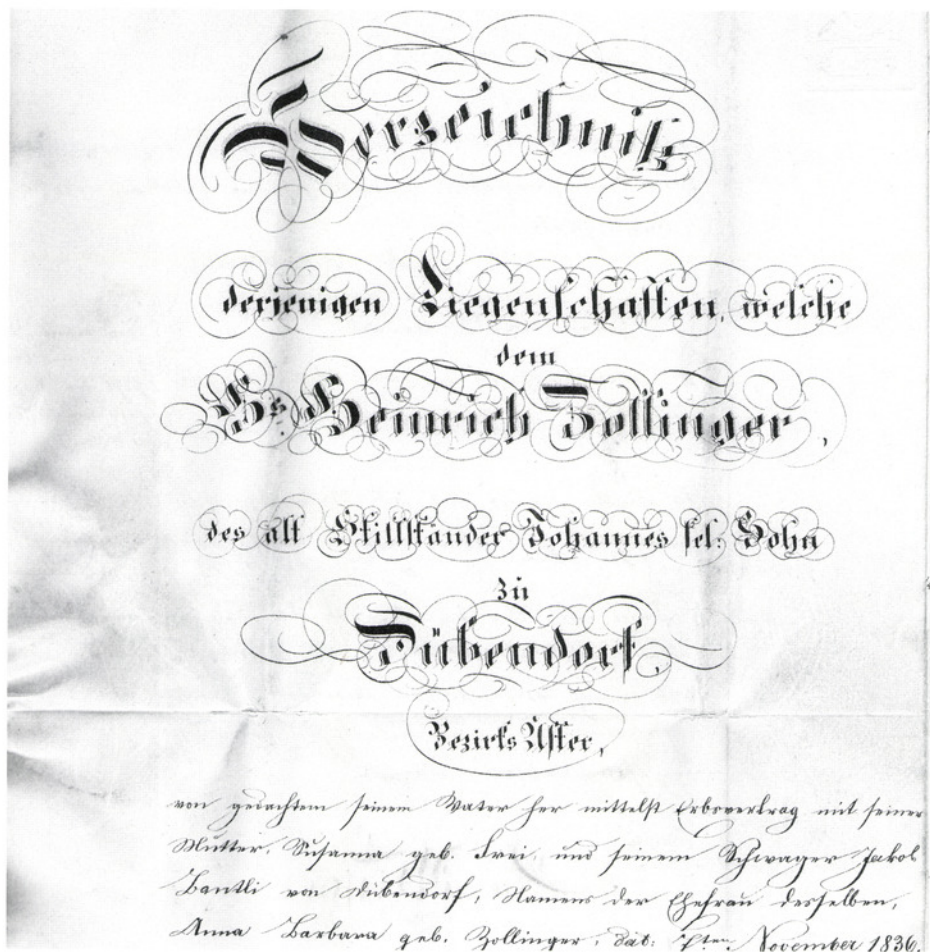 Verzeichniß
derjenigen Liegenschaften, welche
dem
Hs. Heinrich Zollinger,
des alt Stillständer Johannes sel: Sohn
zu
Dübendorf,
Bezirks Uster,
von gedachtem seinem Vater her mittelst Erbsvertrag mit seiner
Mutter, Susanna geb. Frei, und seinem Schwager Jakob
Bantli von Dübendorf, Namens der Ehefrau desselben,
Anna Barbara geb. Zollinger, dat: 7ten November 1836.